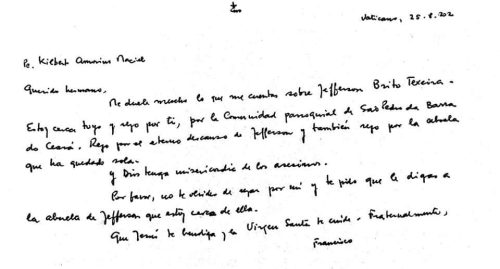 Vaticano, 25.8.202
Pe. Kilbert Amorim Maciel
Querido hermano,
Me duele mucho lo que me cuentas sobre Jefferson Brito Teixeira.
Estoy cerca tuyo y rezo por ti, por la Comunidad parroquial de São Pedro da Barra
do Ceará. Rezo por el eterno descanso de Jefferson y también rezo por la abuela
que ha quedado sola.
y Dios tenga misericordia de los asesinos.
Por favor, no te olvides de rezar por mí y te pido que le digas a
la abuela de Jefferson que estoy cerca de ella.
Que Jesús te bendiga y la Virgen Santa te cuide. Fraternalmente,
Francisco